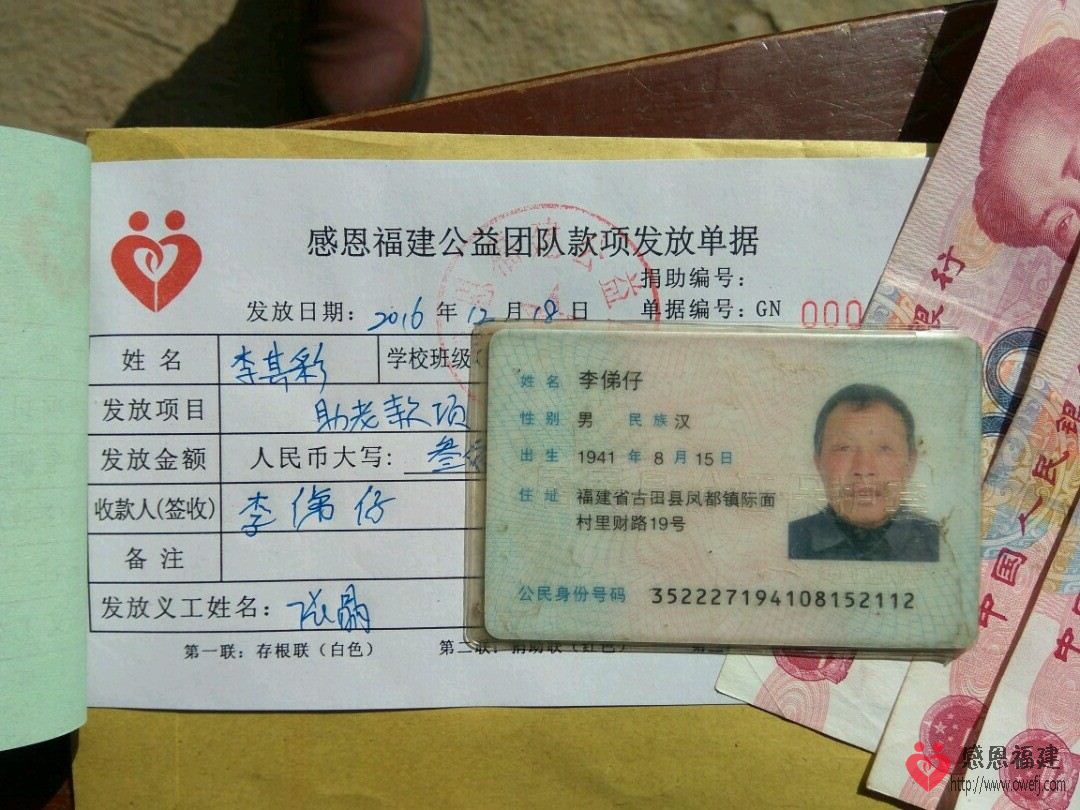 感恩福建公益团队款项发放单据
捐助编号：
发放日期：2016 年 12 月 18 日 单据编号：GN 000
姓名 李其彩 学校班级
发放项目 助老款项
发放金额 人民币大写：叁
收款人(签收) 李俤仔
备注
发放义工姓名：
第一联：存根联（白色） 第二联：捐助联（红色）
姓名 李俤仔
性别 男 民族 汉
出生 1941 年 8 月 15 日
住址 福建省古田县凤都镇际面
村里财路19号
公民身份号码 352227194108152112
中国人民银行
感恩福建
http://www.owefj.com/